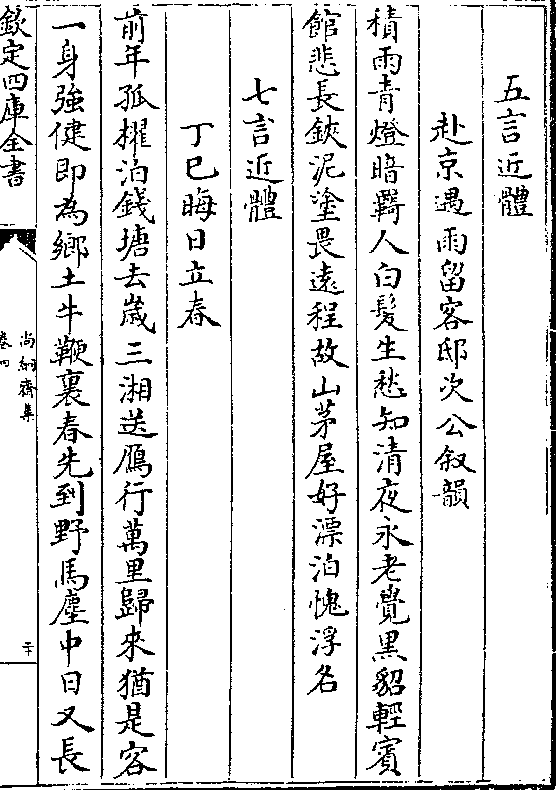 五言近體
赴京遇雨留客邸次公叙韻
積雨青燈暗羇人白髮生愁知清夜永老覺黒貂輕賔
館悲長鋏泥塗畏遠程故山茅屋好漂泊愧浮名
七言近體
丁巳晦日立春
前年孤櫂泊錢塘去嵗三湘送鴈行萬里歸來猶是容
一身強健即為鄉土牛鞭裏春先到野馬塵中日又長
欽定四庫全書
尚絅齋集
卷四
二十